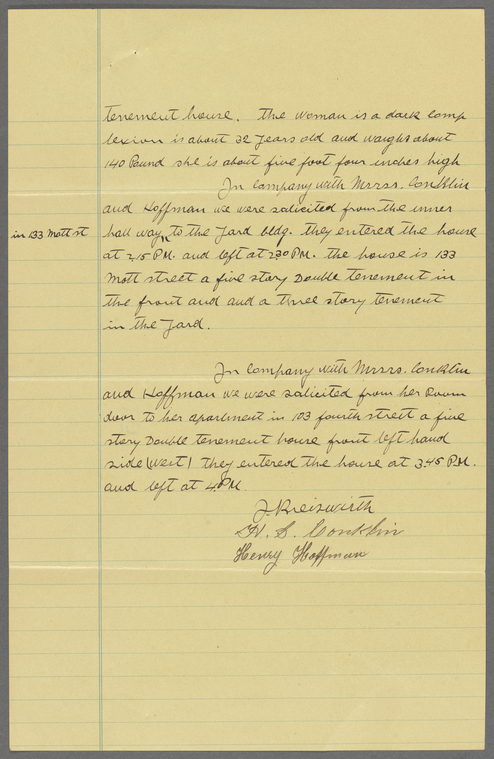 tenement house. the woman is a dark comp
lexion is about 32 Years old and waighs about
140 Pound she is about five foot four inches high
In Company with Mrsrs. Conklin
and Hoffman we were salicited from the inner
in 133 Mott st
hall way to the Yard bldg. they entered the house
at 2,15 P.M. and left at 230 P.M. the house is 133
Mott street a five story Double tenement in
the front and and a three story tenement
in the Yard.
In Company with Mrsrs. Conklin
and Hoffman we were salicited from her Room
door to her apartment in 103 fourth street a five
story Double tenement house front left hand
side (West) they entered the house at 3.45 P.M.
and left at 4 P.M
J. Kreiswirth
H. S. Conklin
Henry Hoffman